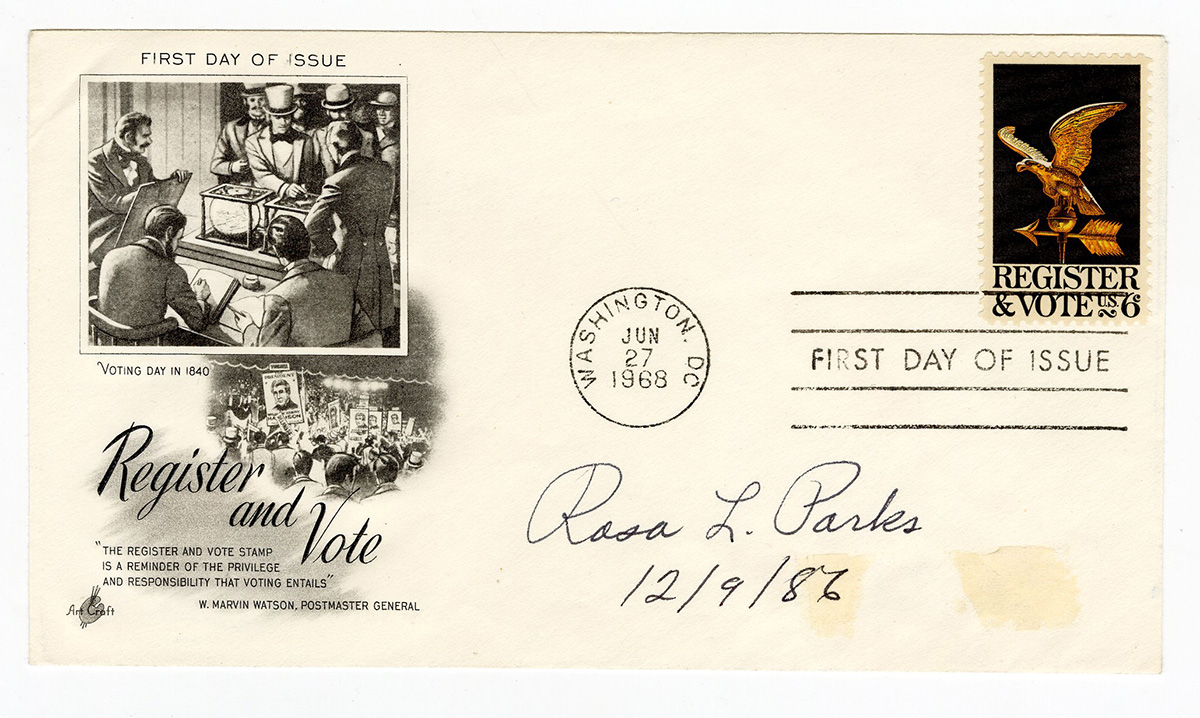 FIRST DAY OF ISSUE
"VOTING DAY IN 1840"
Register
and
Vote
"THE REGISTER AND VOTE STAMP
IS A REMINDER OF THE PRIVILEGE
AND RESPONSIBILITY THAT VOTING ENTAILS"
W. MARVIN WATSON, POSTMASTER GENERAL
Art Craft
WASHINGTON, DC
JUN
27
1968
REGISTER
& VOTE U.S. 6
FIRST DAY OF ISSUE
Rosa L. Parks
12/9/86